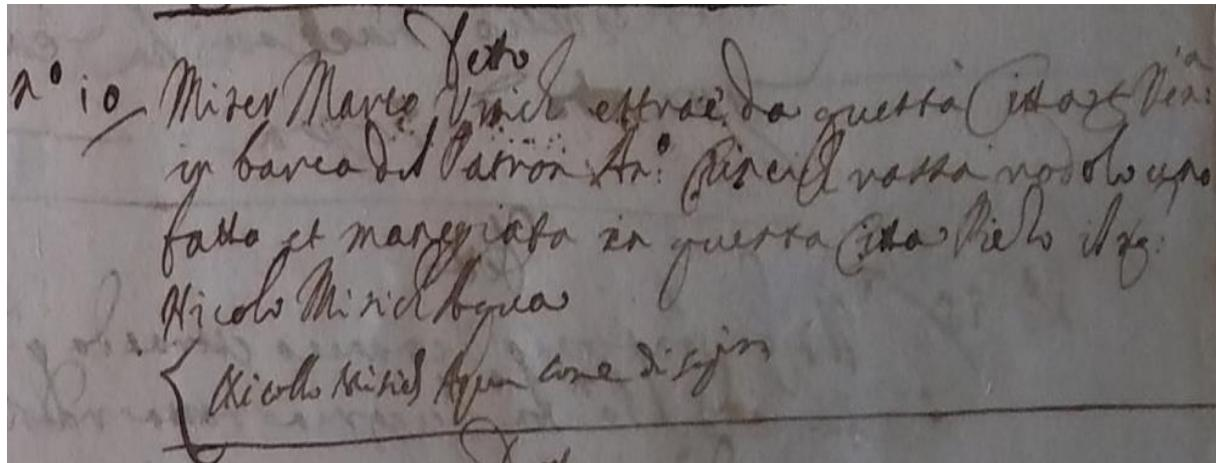 Detto
n° 10 Miser Marco estrae da questa Citta et Ven:a
in barca del Patron An:o rassa rodolo uno
fatta et manegiata in questa Citta Piezo il sg:
Nicolo Misiel Aqua
Nicollo Misiel Aqua come di sopra